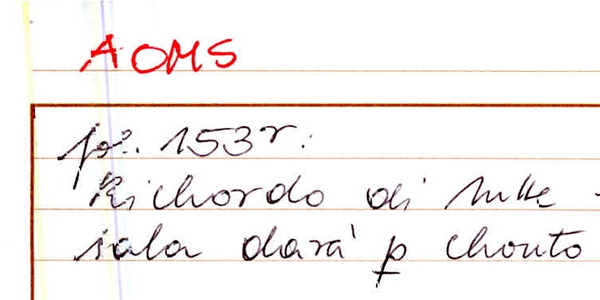 AOMS
fo. 153r.
Richordo di tutte
sala darà p chonto